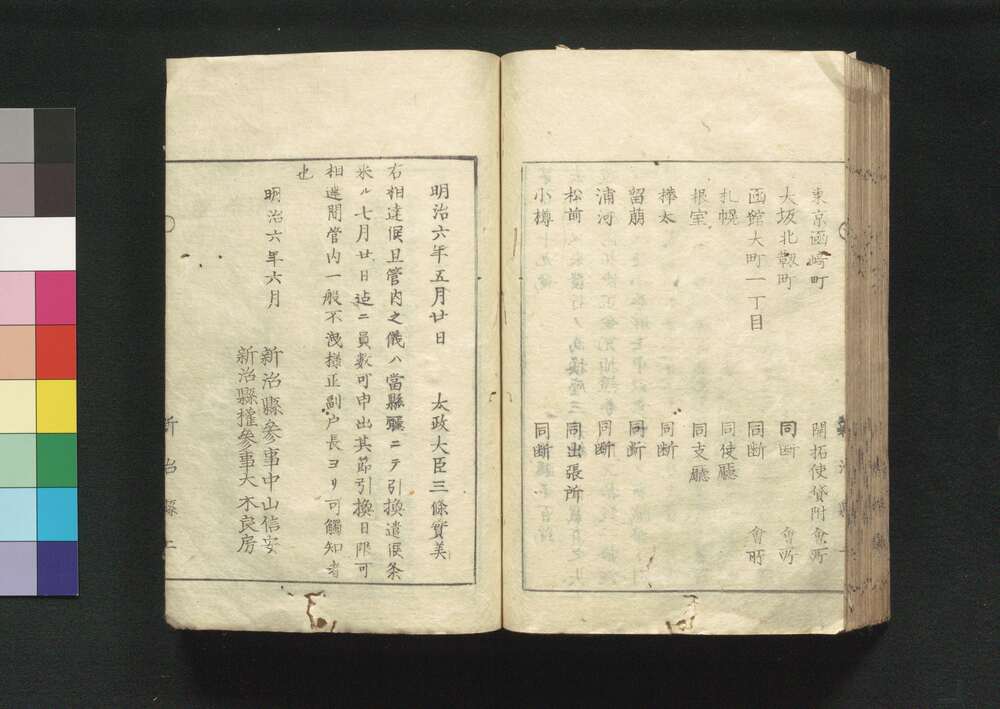 東京函崎町 開拓使貸附會所
大坂北靱町 同断 會所
函館大町一丁目 同断 會所
札幌 同使廳
根室 同支廳
樺太 同断
留萠 同断
浦河 同断
松前 同出張所
小樽 同断
明治六年五月廿日 太政大臣三條實美
右相達候且管内之儀ハ當縣廳ニテ引換遣候条
来ル七月廿日迠ニ員數可申出其節引換日限可
相達間管内一般不洩様正副戸長ヨリ可觸知者
也
明治六年六月
新治縣參事中山信安
新治縣權參事大木良房
新治縣 二